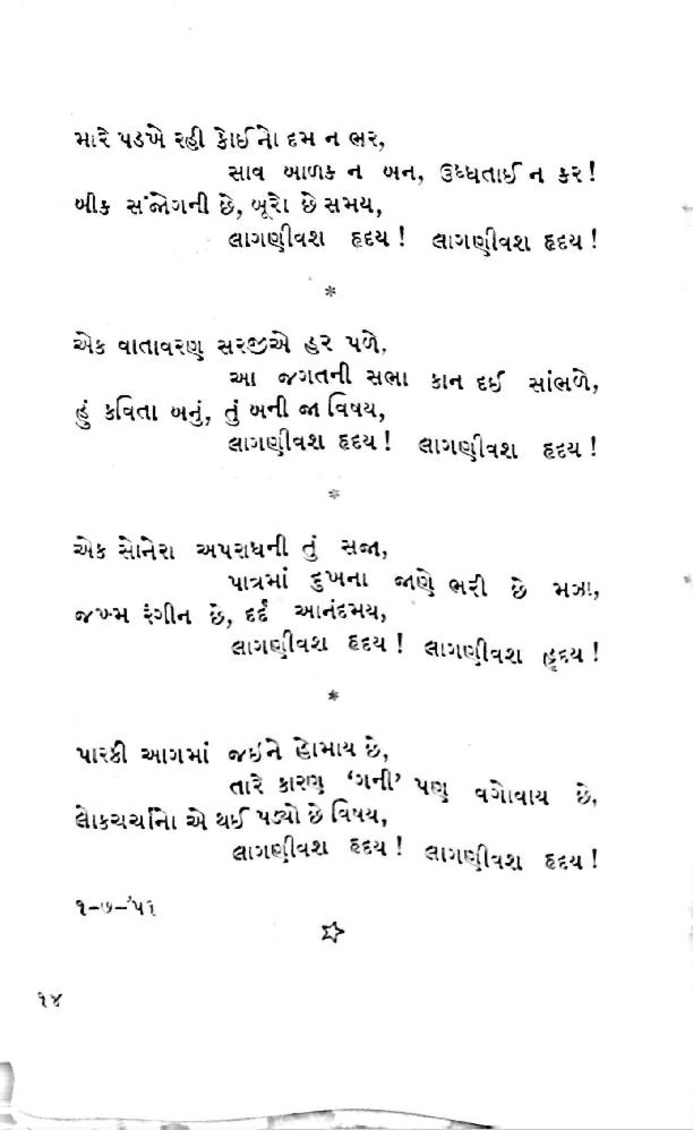 મારે પડખે રહી કોઈનો દમ ન ભર,
સાવ બાળક ન બન, ઉધ્ધતાઈ ન કર!
બીક સંજોગની છે, બૂરો છે સમય,
લાગણીવશ હૃદય! લાગણીવશ હૃદય!
*
એક વાતાવરણ સરજીએ હર પળે,
આ જગતની સભા કાન દઈ સાંભળે,
હું કવિતા બનું, તું બની જા વિષય,
લાગણીવશ હૃદય! લાગણીવશ હૃદય!
*
એક સોનેરા અપરાધની તું સજા,
પાત્રમાં દુખના જાણે ભરી છે મઝા,
જખ્મ રંગીન છે, દર્દ આનંદમય,
લાગણીવશ હૃદય! લાગણીવશ હૃદય!
*
પારકી આગમાં જઇને હોમાય છે,
તારે કારણ ‘ગની’ પણ વગોવાય છે,
લોકચર્ચાનો એ થઈ પડ્યો છે વિષય,
લાગણીવશ હૃદય! લાગણીવશ હૃદય!
૧-૭-’૫૧
☆
૧૪